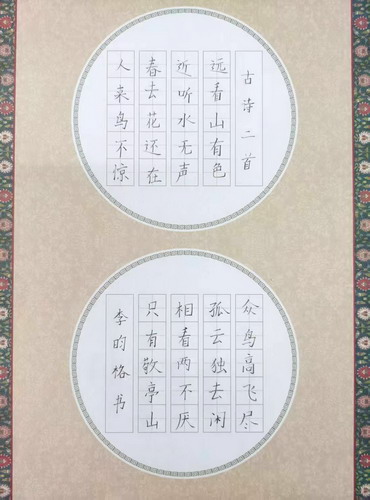 古诗二首
远看山有色
近听水无声
春去花还在
人来鸟不惊
众鸟高飞尽
孤云独去闲
相看两不厌
只有敬亭山
李昀格书